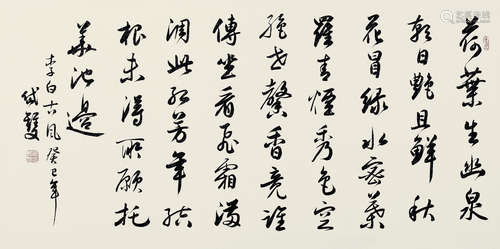 荷葉生幽泉
朝日艷且鮮秋
花冒綠水密葉
羅青煙秀色空
絕世馨香竟誰
傳坐看飛霜滿
凋此紅芳年結
根未得所願托
華池邊
李白古風 癸巳年